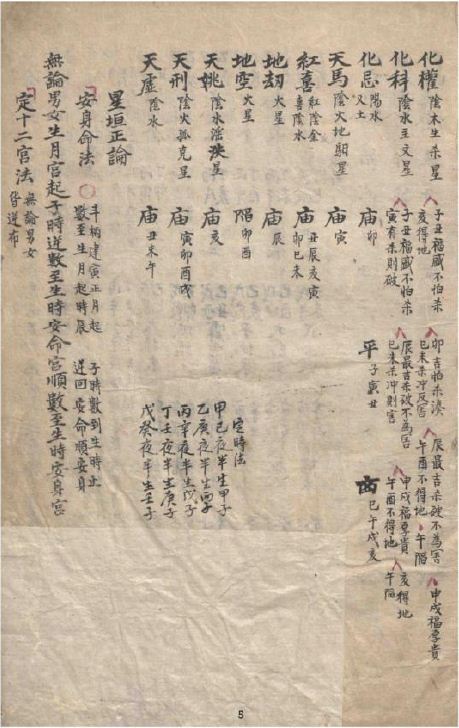 化權 陰木生杀星 子丑福盛不怕杀 卯吉怕杀湊 辰最吉杀破不為害 申戌福厚貴
亥得地 巳未杀冲反害 午酉不得地 午陷
化科 陰水主文星 子丑福盛不怕杀 辰最吉杀破不為害 申戌福厚貴 亥得地
寅有杀則破 巳未杀冲則害 午酉不得地 午陷
化忌 陽水又土 庙 卯 平 子寅丑 巳午戌亥
天馬 陰火地駟星 庙 寅
紅喜 紅陰金 喜陰水 庙 丑辰亥寅 卯巳未
地劫 火星 庙 辰
地空 火星 陷 卯酉
天姚 陰水淫泆星 庙 亥
天刑 陰火孤克星 庙 寅卯酉戌
天虛 陰水 庙 丑未午
定時法
甲己夜半生甲子
乙庚夜半生丙子
丙辛夜半生戊子
丁壬夜半生庚子
戊癸夜半生壬子
星垣正論
安身命法 斗柄建寅正月起 子時數到生時止
數至生月起時辰 逆回安命順安身
無論男女生月宮起子時逆數至生時安命宮順數至生時安身宮
定十二宮法 無論男女
皆逆布
5